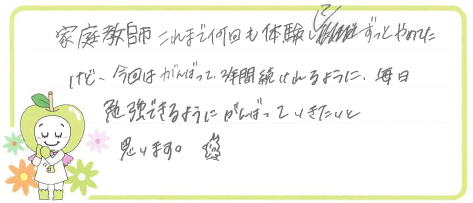 家庭教師これまで何回も体験して ずっとやめてた
けど、今回はがんばって、3年間続けれるように、毎日
勉強できるようにがんばっていきたいと
思います。